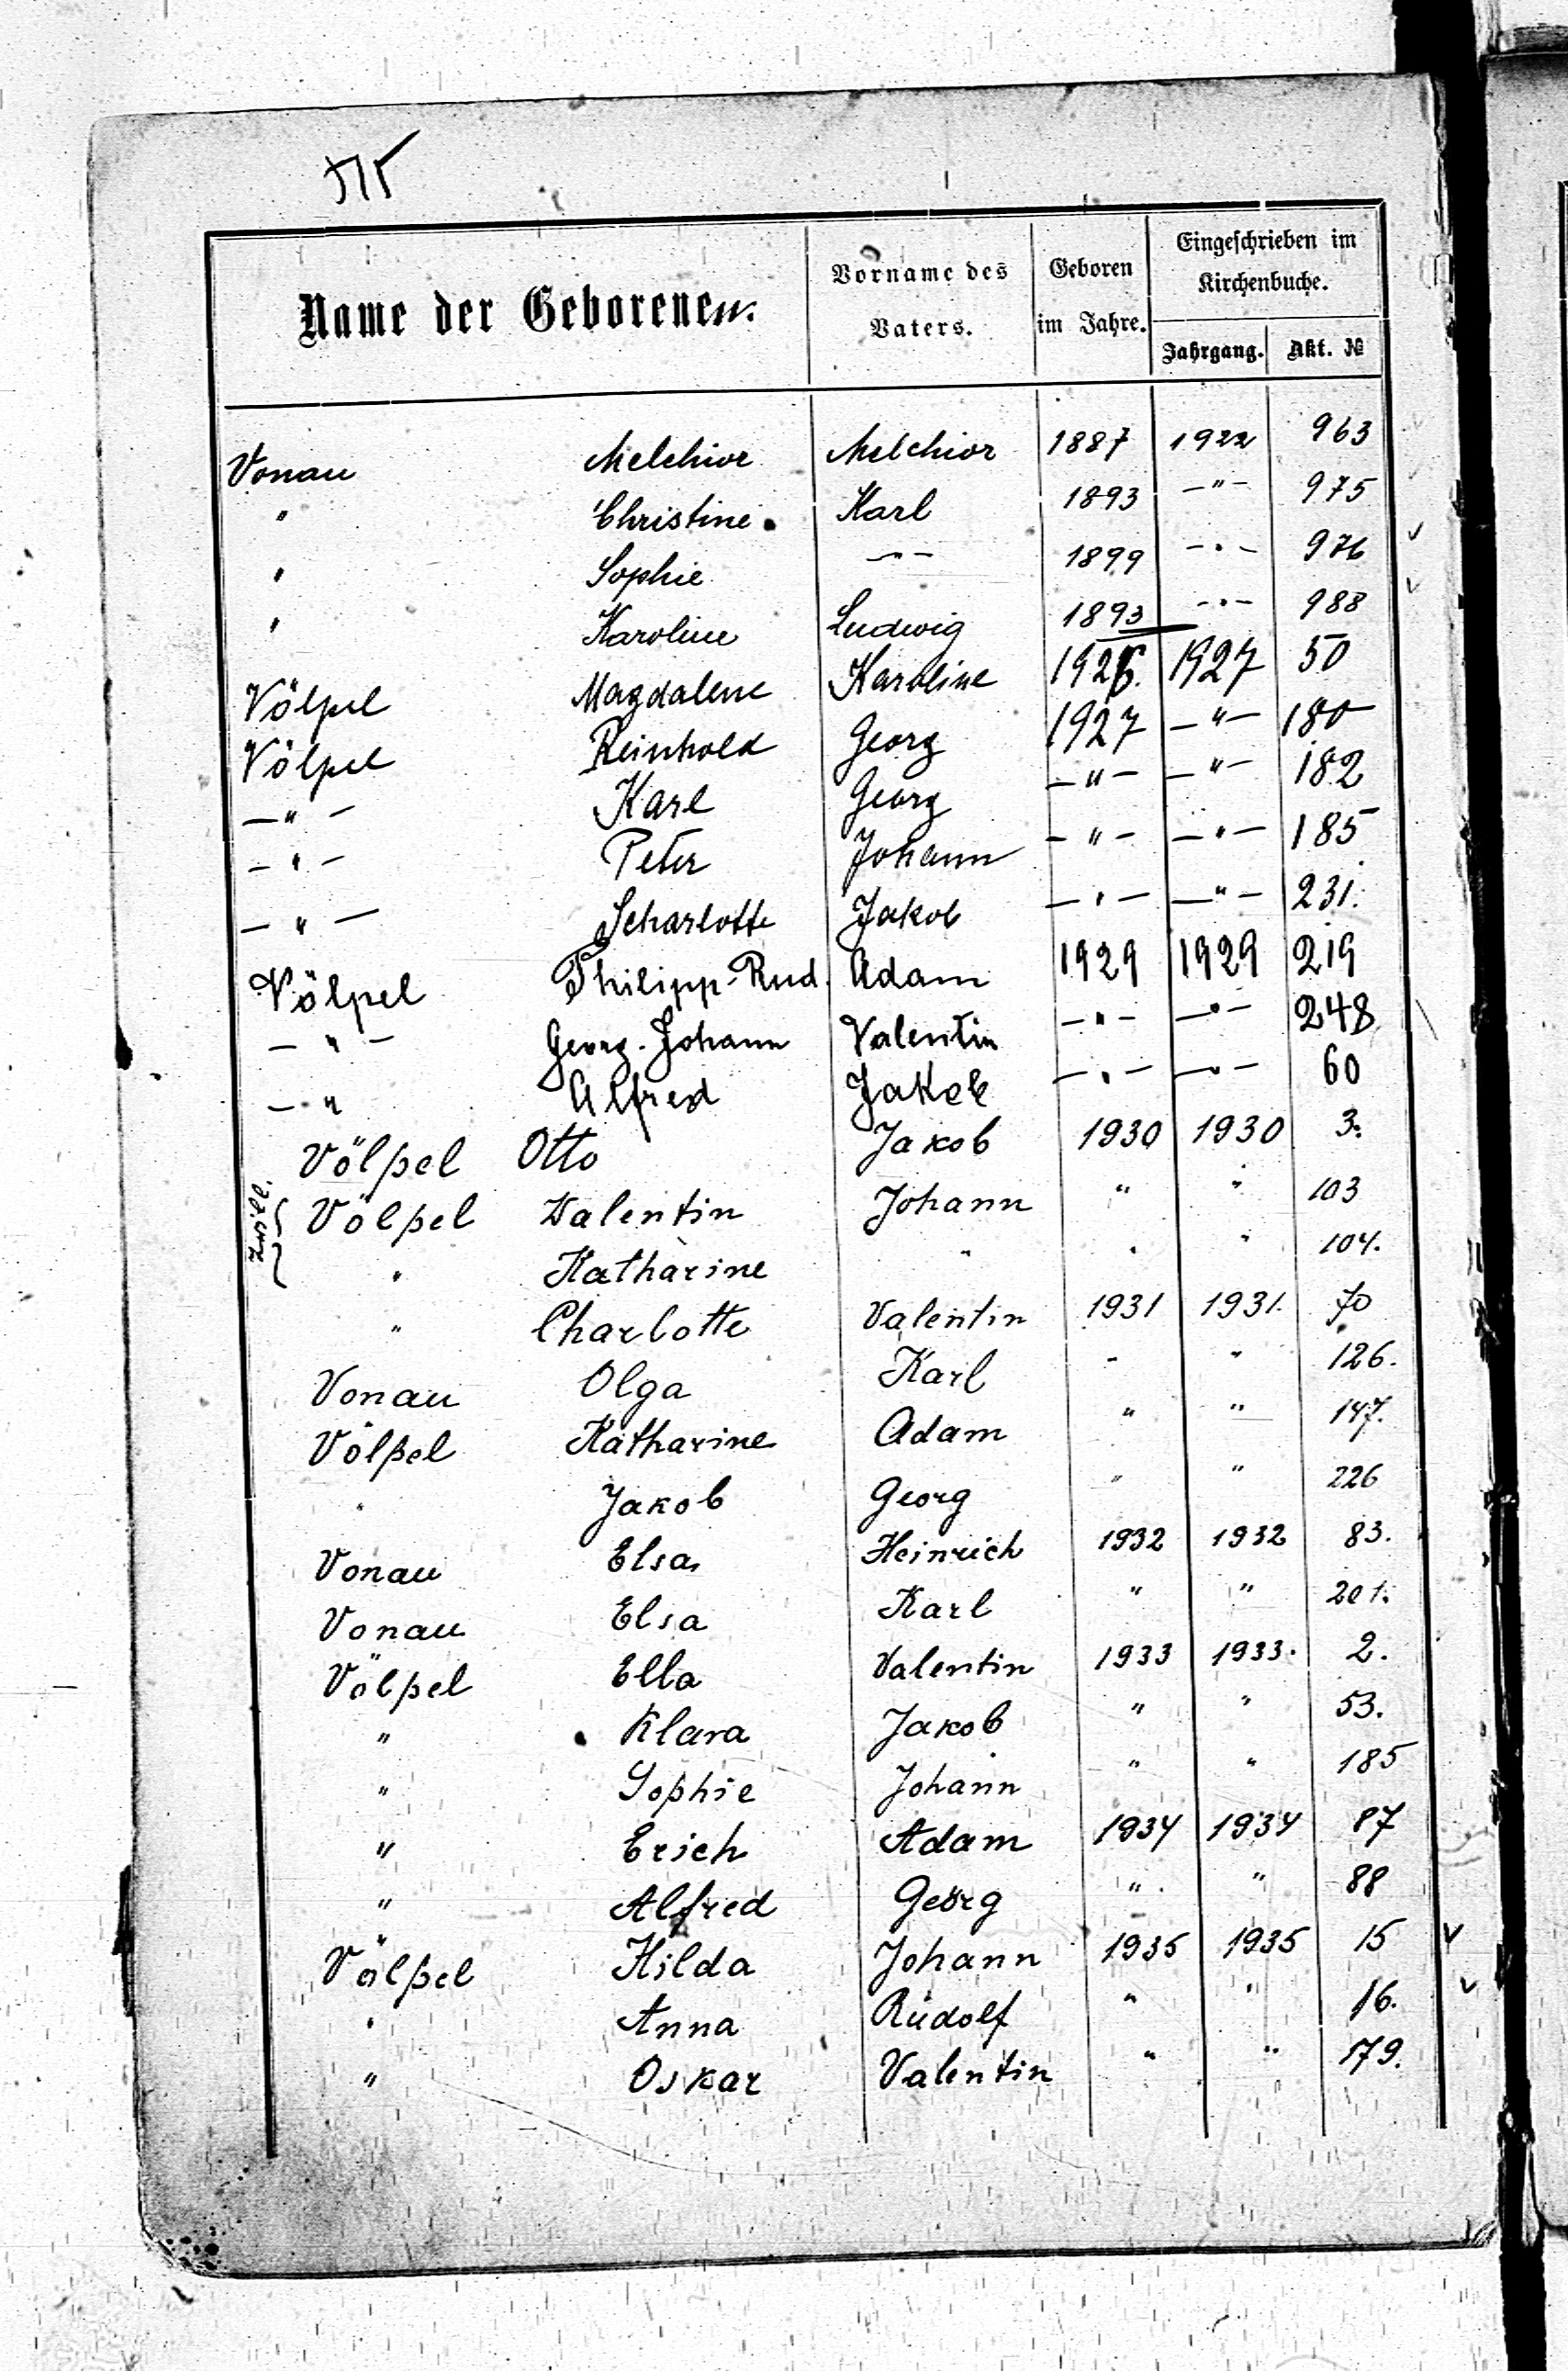 Name der Geborenen. Vorname des Vaters. Geboren im Jahre. Eingeschrieben im Kirchenbuche.
Jahrgang. Akt. №
Vonau Melchior Melchior 1887 1922 963
" Christine Karl 1893 —"— 975
" Sophie —"— 1899 —"— 976
" Karoline Ludwig 1893 —"— 988
Völpel Magdalene Karoline 1926. 1927 50
Völpel Reinhold Georg 1927 —"— 180
—"— Karl Georg —"— —"— 182
—"— Peter Johann —"— —"— 185
—"— Scharlotte Jakob —"— —"— 231.
Völpel Philipp-Rud. Adam 1929 1929 219
—"— Georg-Johann Valentin —"— —"— 248
—" Alfred Jakob —"— —"— 60
Völpel Otto Jakob 1930 1930 3.
Zwill. Völpel Valentin Johann " " 103
" Katharine " " " 104.
" Charlotte Valentin 1931 1931. 70
Vonau Olga Karl " " 126.
Völpel Katharine Adam " " 147.
" Jakob Georg " " 226
Vonau Elsa Heinrich 1932 1932 83.
Vonau Elsa Karl " " 201.
Völpel Ella Valentin 1933 1933. 2.
" Klara Jakob " " 53.
" Sophie Johann " " 185
" Erich Adam 1934 1934 87
" Alfred Georg " " 88
Völpel Hilda Johann 1935 1935 15 v
" Anna Rudolf " " 16. v
" Oskar Valentin " " 179.